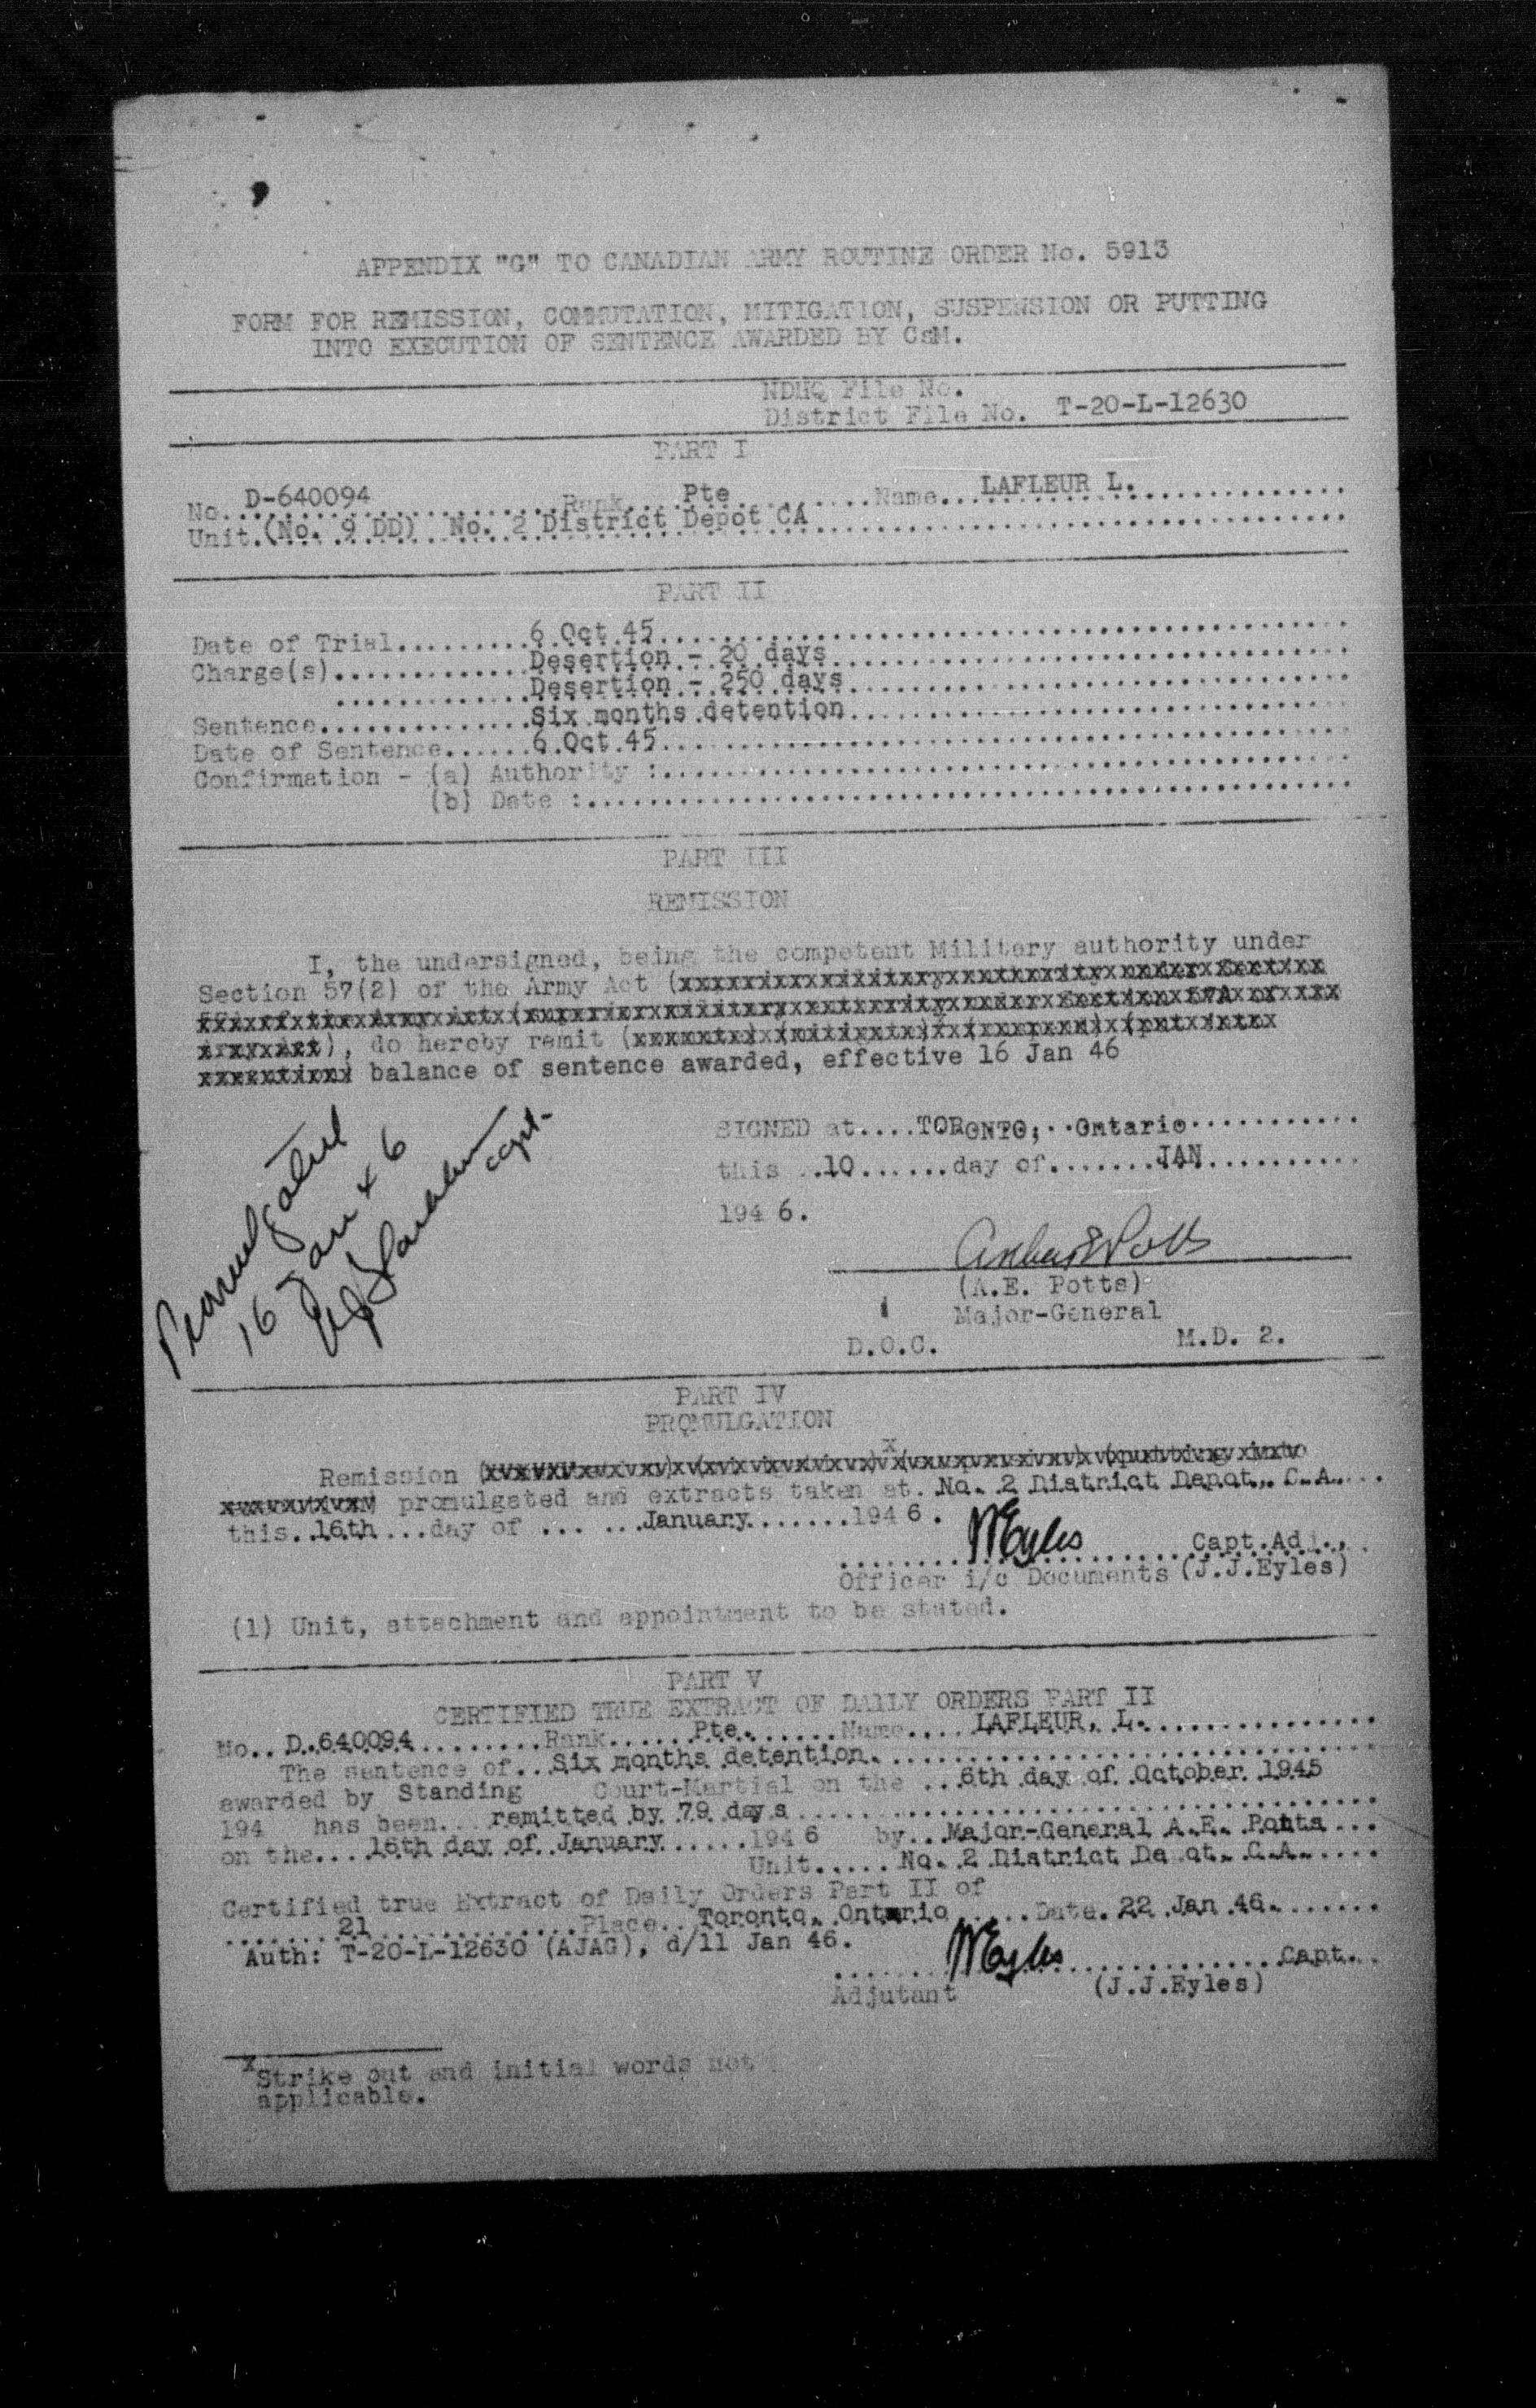 APPENDIX "G" TO CANADIAN ARMY ROUTINE ORDER No. 5913
FORM FOR REMISSION, COMMUTATION, MITIGATION, SUSPENSION OR PUTTING
INTO EXECUTION OF SENTENCE AWARDED BY CsM.
NDHQ File No.
District File No. T-20-L-12630
PART I
No. D-640094 Rank Pte Name LAFLEUR L.
Unit (No. 9 DD) No. 2 District Depot CA
PART II
Date of Trial 6 Oct 45
Charge(s) Desertion - 20 days
Desertion - 250 days
Sentence Six months detention
Date of Sentence 6 Oct 45
Confirmation - (a) Authority :
(b) Date :
PART III
REMISSION
I, the undersigned, being the competent Military authority under
Section 57(2) of the Army Act (
), do hereby remit (
balance of sentence awarded, effective 16 Jan 46
SIGNED at TORONTO, Ontario
this 10 day of JAN
194 6.
Promulgated
16 Jan 46
Capt.
Arthur E Potts
(A.E. Potts)
Major-General
D.O.C. M.D. 2.
PART IV
PROMULGATION
x
Remission
promulgated and extracts taken at No. 2 District Depot, C.A.
this 16th day of January 194 6.
JJEyles Capt.Adj.,
Officer i/c Documents (J.J.Eyles)
(1) Unit, attachment and appointment to be stated.
PART V
CERTIFIED TRUE EXTRACT OF DAILY ORDERS PART II
No. D.640094 Rank Pte. Name LAFLEUR, L.
The sentence of Six months detention.
awarded by Standing Court-Martial on the 6th day of October 1945
194 has been remitted by 79 days
on the 16th day of January 194 6 by Major-General A.E. Potts
Unit No. 2 District De ot. C.A.
Certified true Extract of Daily Orders Part II of
21 Place Toronto, Ontario Date 22 Jan 46.
Auth: T-20-L-12630 (AJAG), d/11 Jan 46.
JJEyles Capt.
Adjutant (J.J.Eyles)
x Strike out and initial words not
applicable.